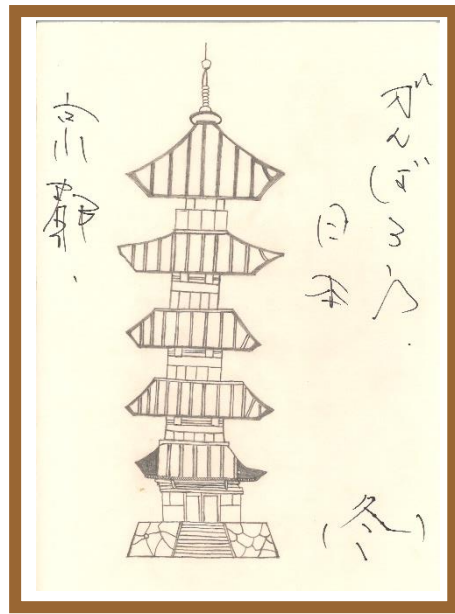 がんばろう.
日本
(冬)
京都、